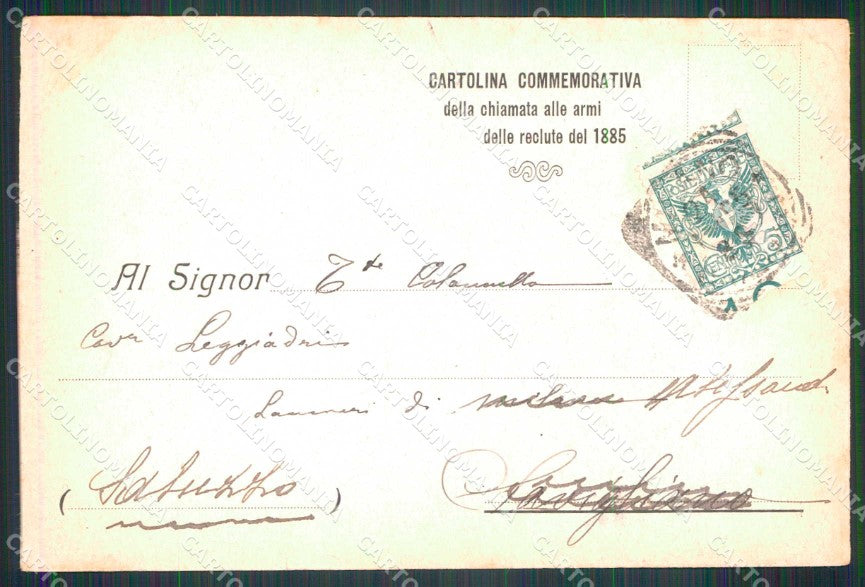 CARTOLINA COMMEMORATIVA
della chiamata alle armi
delle reclute del 1885
Al Signor Tte Colonnello
Cavr Leggiadri
Lancieri di Milano Alessand.
(Saluzzo) Savigliano